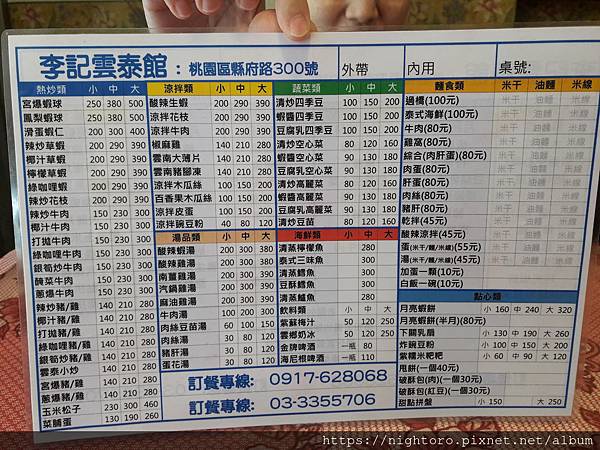 李記雲泰館：桃園區縣府路300號 外帶 內用 桌號:
熱炒類 小 中 大
宮爆蝦球 250 380 500
鳳梨蝦球 250 380 500
滑蛋蝦仁 200 300 400
辣炒草蝦 200 290 390
椰汁草蝦 200 290 390
檸檬草蝦 200 290 390
綠咖哩蝦 200 290 390
辣炒花枝 200 290 390
辣炒牛肉 150 230 300
椰汁牛肉 150 230 300
打拋牛肉 150 230 300
綠咖哩牛肉 150 230 300
銀筍炒牛肉 150 230 300
醃菜牛肉 150 230 300
蔥爆牛肉 150 230 300
辣炒豬/雞 140 210 280
椰汁豬/雞 140 210 280
打拋豬/雞 140 210 280
綠咖哩豬/雞 140 210 280
銀筍炒豬/雞 140 210 280
雲泰小炒 140 210 280
宮爆豬/雞 140 210 280
蔥爆豬/雞 140 210 280
玉米松子 230 300 460
菜脯蛋 130 190 260
涼拌類 小 中 大
酸辣生蝦 200 290 390
涼拌花枝 200 290 390
涼拌牛肉 200 290 390
椒麻雞 160 230 300
雲南大薄片 160 230 300
雲南豬腳凍 160 230 300
涼拌木瓜絲 100 150 200
百香果木瓜絲 100 150 200
涼拌皮蛋 100 150 200
涼拌豌豆粉 40 80 120
湯品類 小 中 大
酸辣蝦湯 200 300 380
酸辣雞湯 200 300 380
南薑雞湯 200 300 380
汽鍋雞湯 200 300 380
麻油雞湯 200 300 380
牛肉湯 100 200 300
肉絲豆苗湯 60 100 150
肉絲湯 30 80 120
豬肝湯 30 80 120
蛋花湯 30 80 120
蔬菜類 小 中 大
清炒四季豆 100 150 200
蝦醬四季豆 100 150 200
豆腐乳四季豆 100 150 200
清炒空心菜 80 120 160
蝦醬空心菜 90 130 180
豆腐乳空心菜 90 130 180
清炒高麗菜 80 120 160
蝦醬高麗菜 90 130 180
豆腐乳高麗菜 90 130 180
清炒豆苗 80 120 160
海鮮類 小 中 大
清蒸檸檬魚 280
泰式三味魚 280
清蒸鱈魚 280
豆酥鱈魚 280
清蒸鱸魚 280
飲料類 小 中 大
紫蘇梅汁 50 120 250
雲椰奶冰 50 120 250
金牌啤酒 一瓶 80
海尼根啤酒 一瓶 110
麵食類 米干 油麵 米線
過橋(100元) 米干 油麵 米線
泰式海鮮(100元) 米干 油麵 米線
牛肉(80元) 米干 油麵 米線
雞窩(80元) 米干 油麵 米線
綜合(肉肝蛋)(80元) 米干 油麵 米線
肉蛋(80元) 米干 油麵 米線
肝蛋(80元) 米干 油麵 米線
肉絲(80元) 米干 油麵 米線
豬肝(80元) 米干 油麵 米線
乾拌(45元) 米干 油麵 米線
酸辣涼拌(45元) 米干 油麵 米線
蛋(米干/麵/米線)(55元) 米干 油麵 米線
湯(米干/麵/米線)(45元) 米干 油麵 米線
加蛋一顆(10元)
白飯一碗(10元)
點心類
月亮蝦餅 小 160 中 240 大 320
月亮蝦餅(半月)(80元)
下關乳扇 小 130 中 190 大 260
炸豌豆粉 小 100 中 150 大 200
紫糯米粑粑 小 60 中 90 大 120
甩餅(一個40元)
破酥包(肉)(一個30元)
破酥包(紅豆)(一個30元)
甜點拼盤 小 150 大 250
訂餐專線: 0917-628068
訂餐專線: 03-3355706
https://nightoro.pixnet.net/album